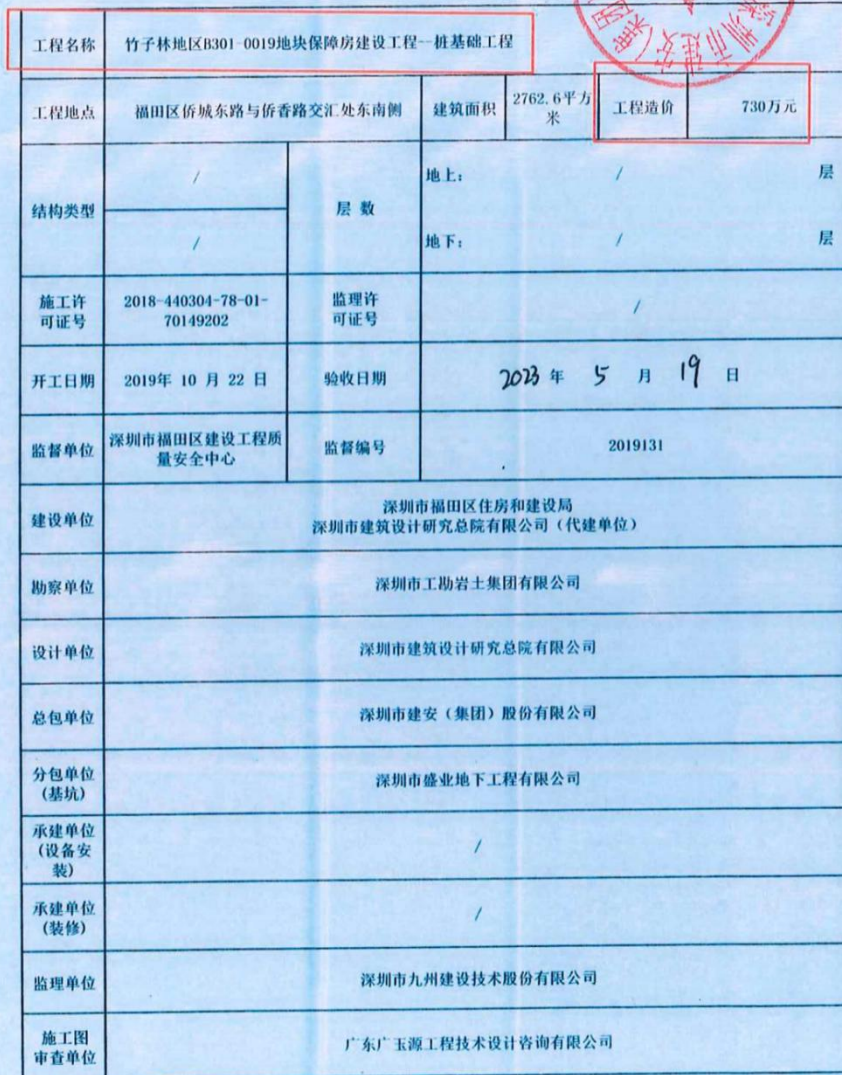 工程名称 竹子林地区B301-0019地块保障房建设工程--桩基础工程
工程地点 福田区侨城东路与侨香路交汇处东南侧 建筑面积 2762.6平方米 工程造价 730万元
结构类型 / / 层数 地上: / 层
地下: / 层
施工许可证号 2018-440304-78-01-70149202 监理许可证号 /
开工日期 2019年 10 月 22 日 验收日期 2023 年 5 月 19 日
监督单位 深圳市福田区建设工程质量安全中心 监督编号 2019131
建设单位 深圳市福田区住房和建设局
深圳市建筑设计研究总院有限公司（代建单位）
勘察单位 深圳市工勘岩土集团有限公司
设计单位 深圳市建筑设计研究总院有限公司
总包单位 深圳市建安（集团）股份有限公司
分包单位(基坑) 深圳市盛业地下工程有限公司
承建单位(设备安装) /
承建单位(装修) /
监理单位 深圳市九州建设技术股份有限公司
施工图审查单位 广东广玉源工程技术设计咨询有限公司